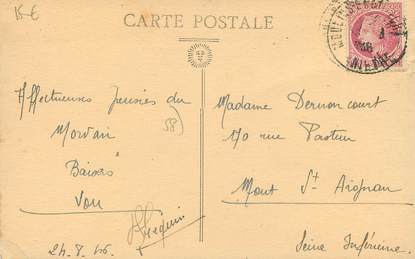 15 €
CARTE POSTALE
NIÈVRE
Affectueuses pensées du
Morvan
Baisers
58
24.8.46
Madame Dernoncourt
170 rue Pasteur
Mont St Aignan
Seine Inférieure